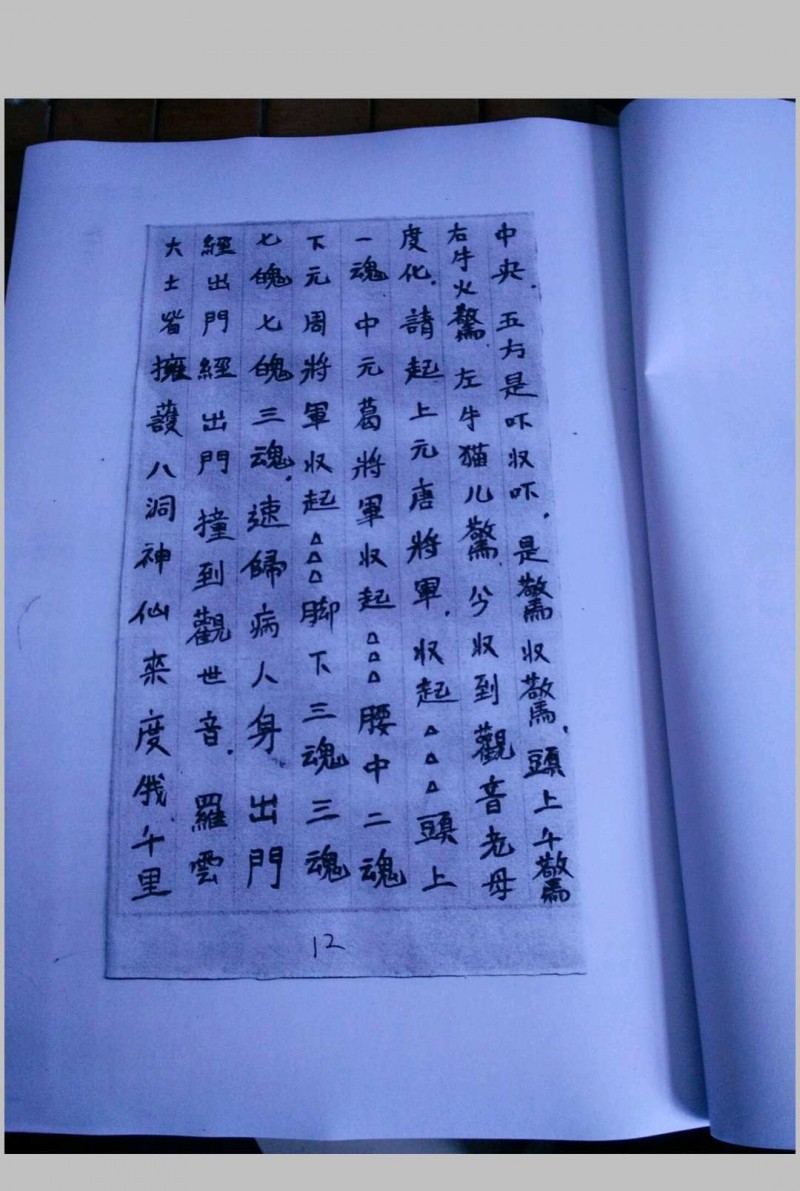 中央.五方是吓収吓.是驚収驚.頭上牛驚
右牛火驚左牛猫儿驚兮収到觀音老母
度化.請起上元唐將軍.収起△△△頭上
一魂中元葛將軍収起△△△腰中二魂
下元周將軍収起△△△脚下三魂三魂
七魄七魄三魂.速歸病人身出門
經出門經出門撞到觀世音.羅雲
大士皆擁護八洞神仙来度俄千里
12